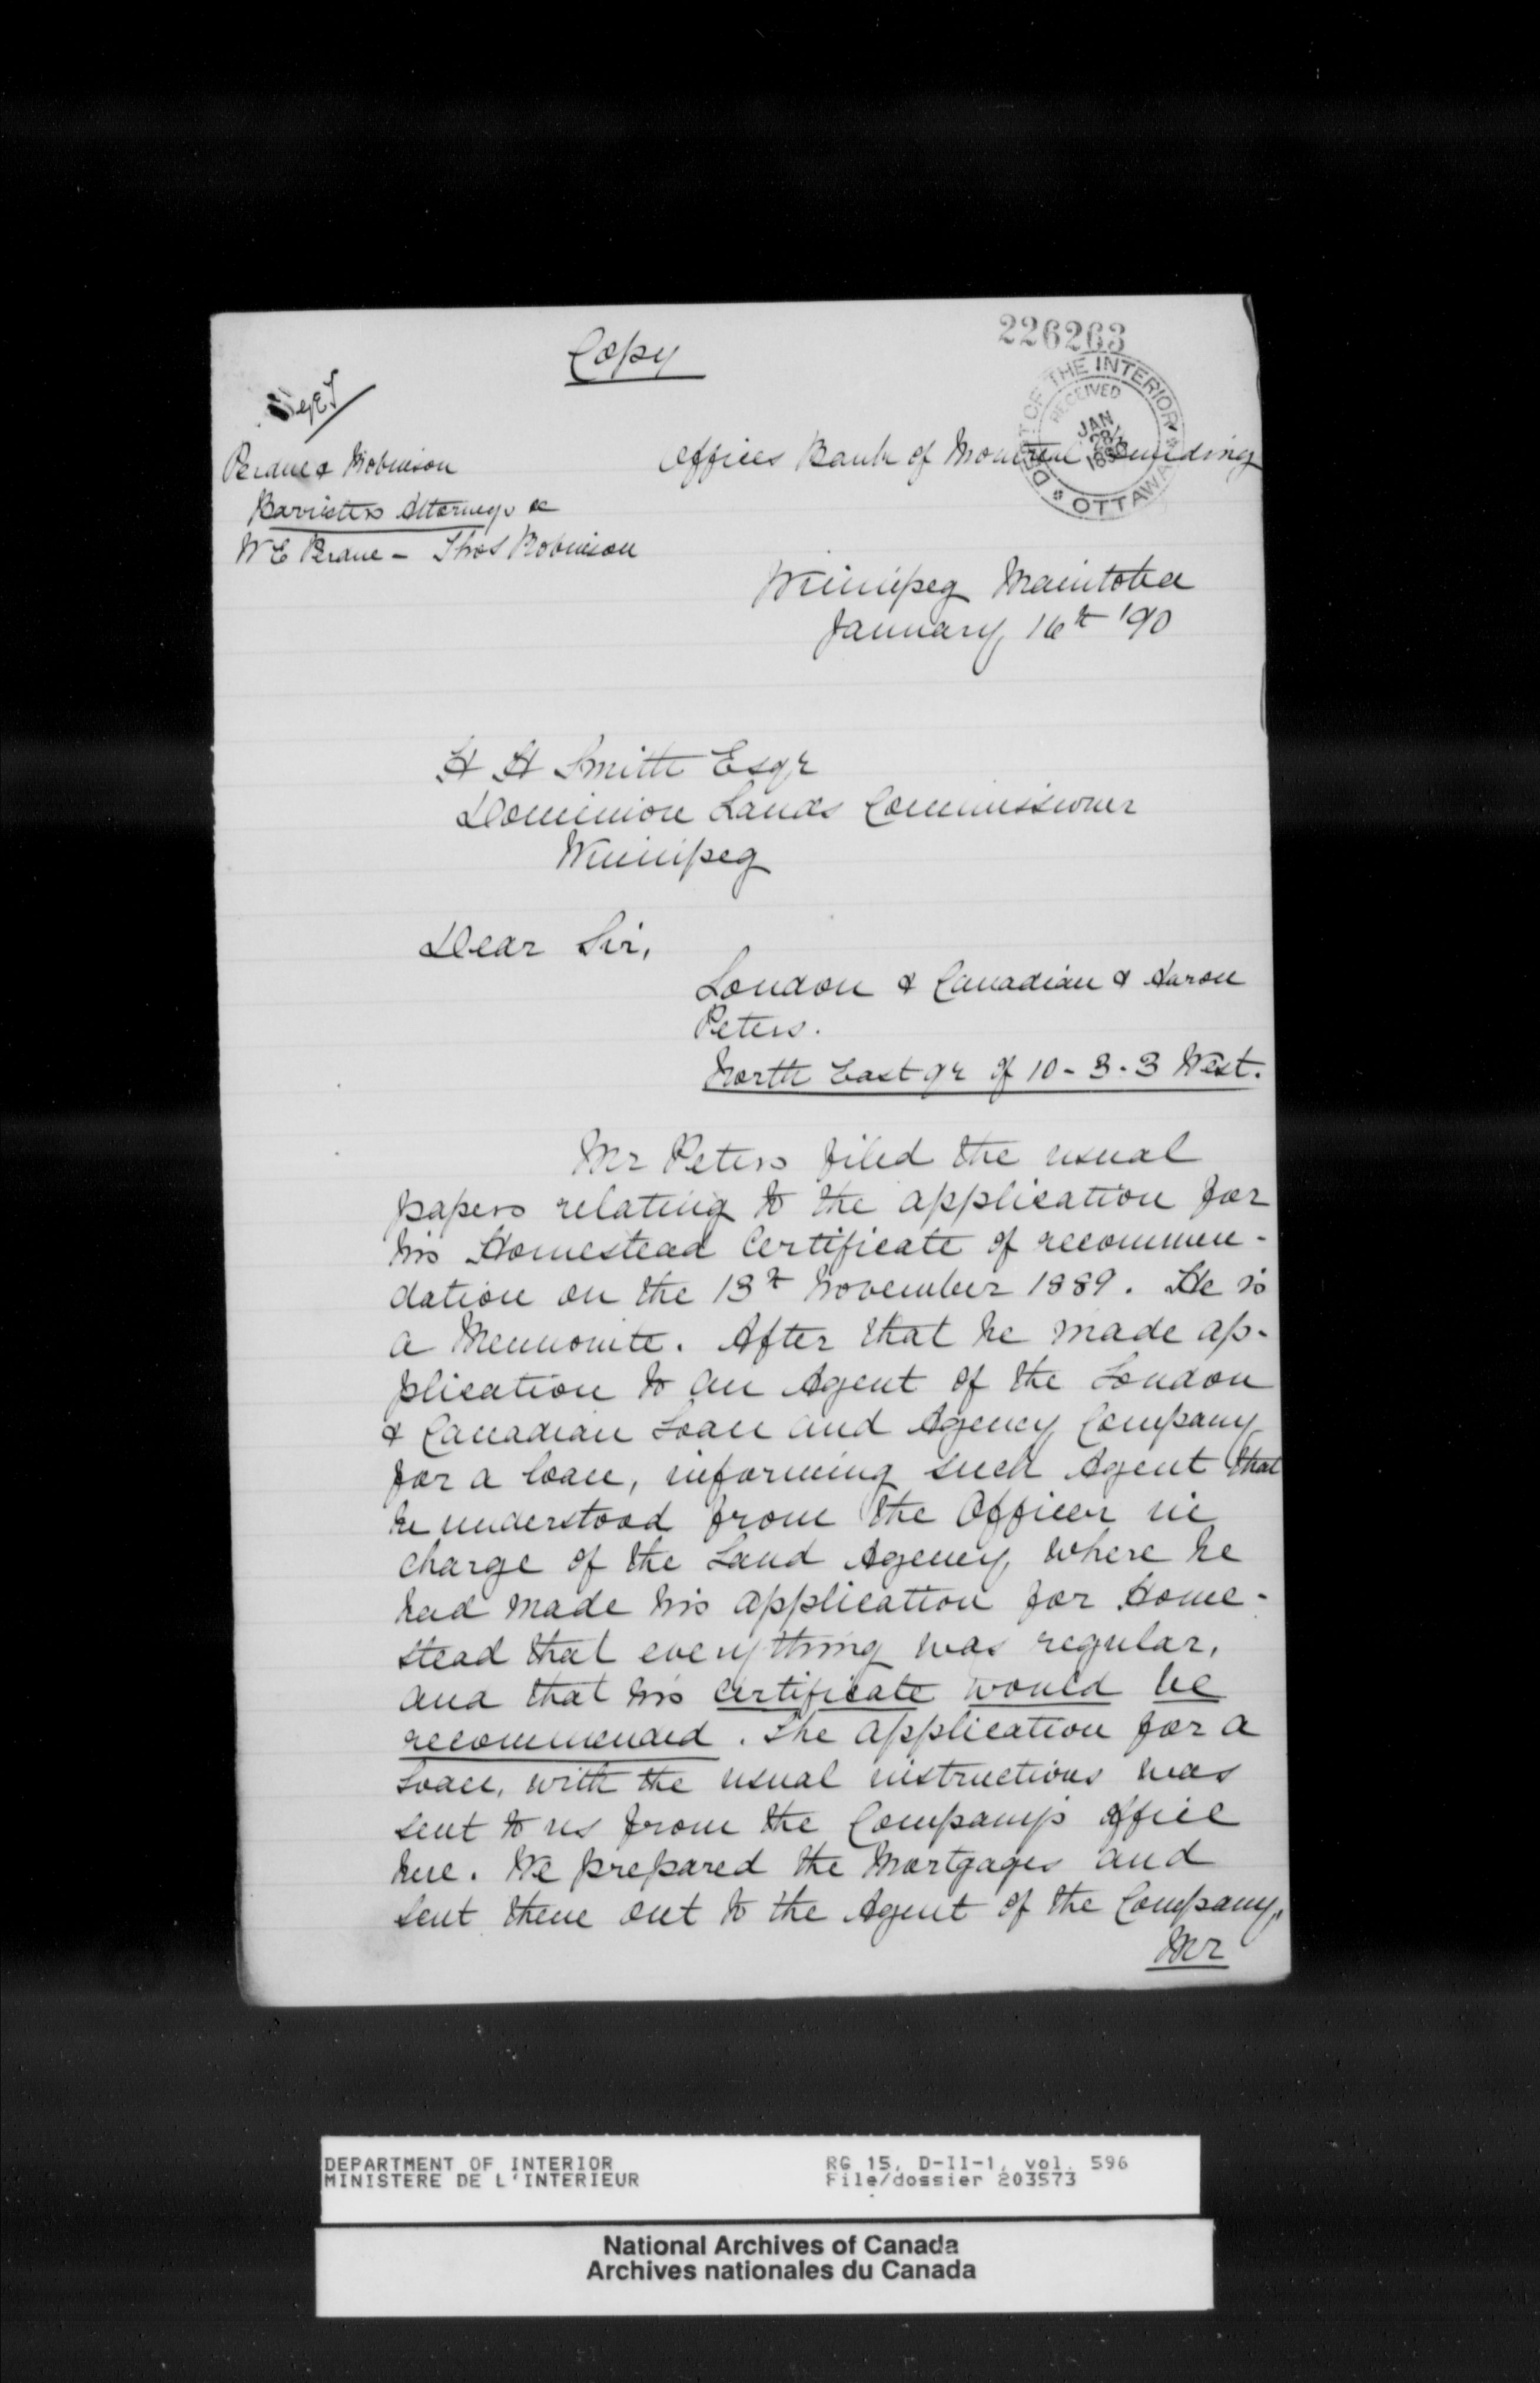 226263
Copy
DEPT OF THE INTERIOR
RECEIVED
JAN
28
1890
OTTAWA
Perdue & Robinson
Offices Bank of Montreal Building
Barristers Attorneys &c
W E Perdue - Thos Robinson
Winnipeg Manitoba
January 16th '90
H H Smith Esqr
Dominion Lands Commissioner
Winnipeg
Dear Sir,
London & Canadian & Aaron
Peters.
North East qr of 10 - 3 - 3 West.
Mr Peters filed the usual
papers relating to the application for
his Homestead Certificate of recommen-
dation on the 13th November 1889. He is
a Mennonite. After that he made ap-
plication to an Agent of the London
& Canadian Loan and Agency Company
for a loan, informing such Agent that
he understood from the Officer in
charge of the Land Agency, where he
had made his application for Home-
stead that everything was regular,
and that his certificate would be
recommended. The application for a
Loan, with the usual instructions was
sent to us from the Company's office
here. We prepared the Mortgages and
sent them out to the Agent of the Company,
Mr
DEPARTMENT OF INTERIOR
MINISTERE DE L'INTERIEUR
RG 15, D-II-1, vol. 596
File/dossier 203573
National Archives of Canada
Archives nationales du Canada